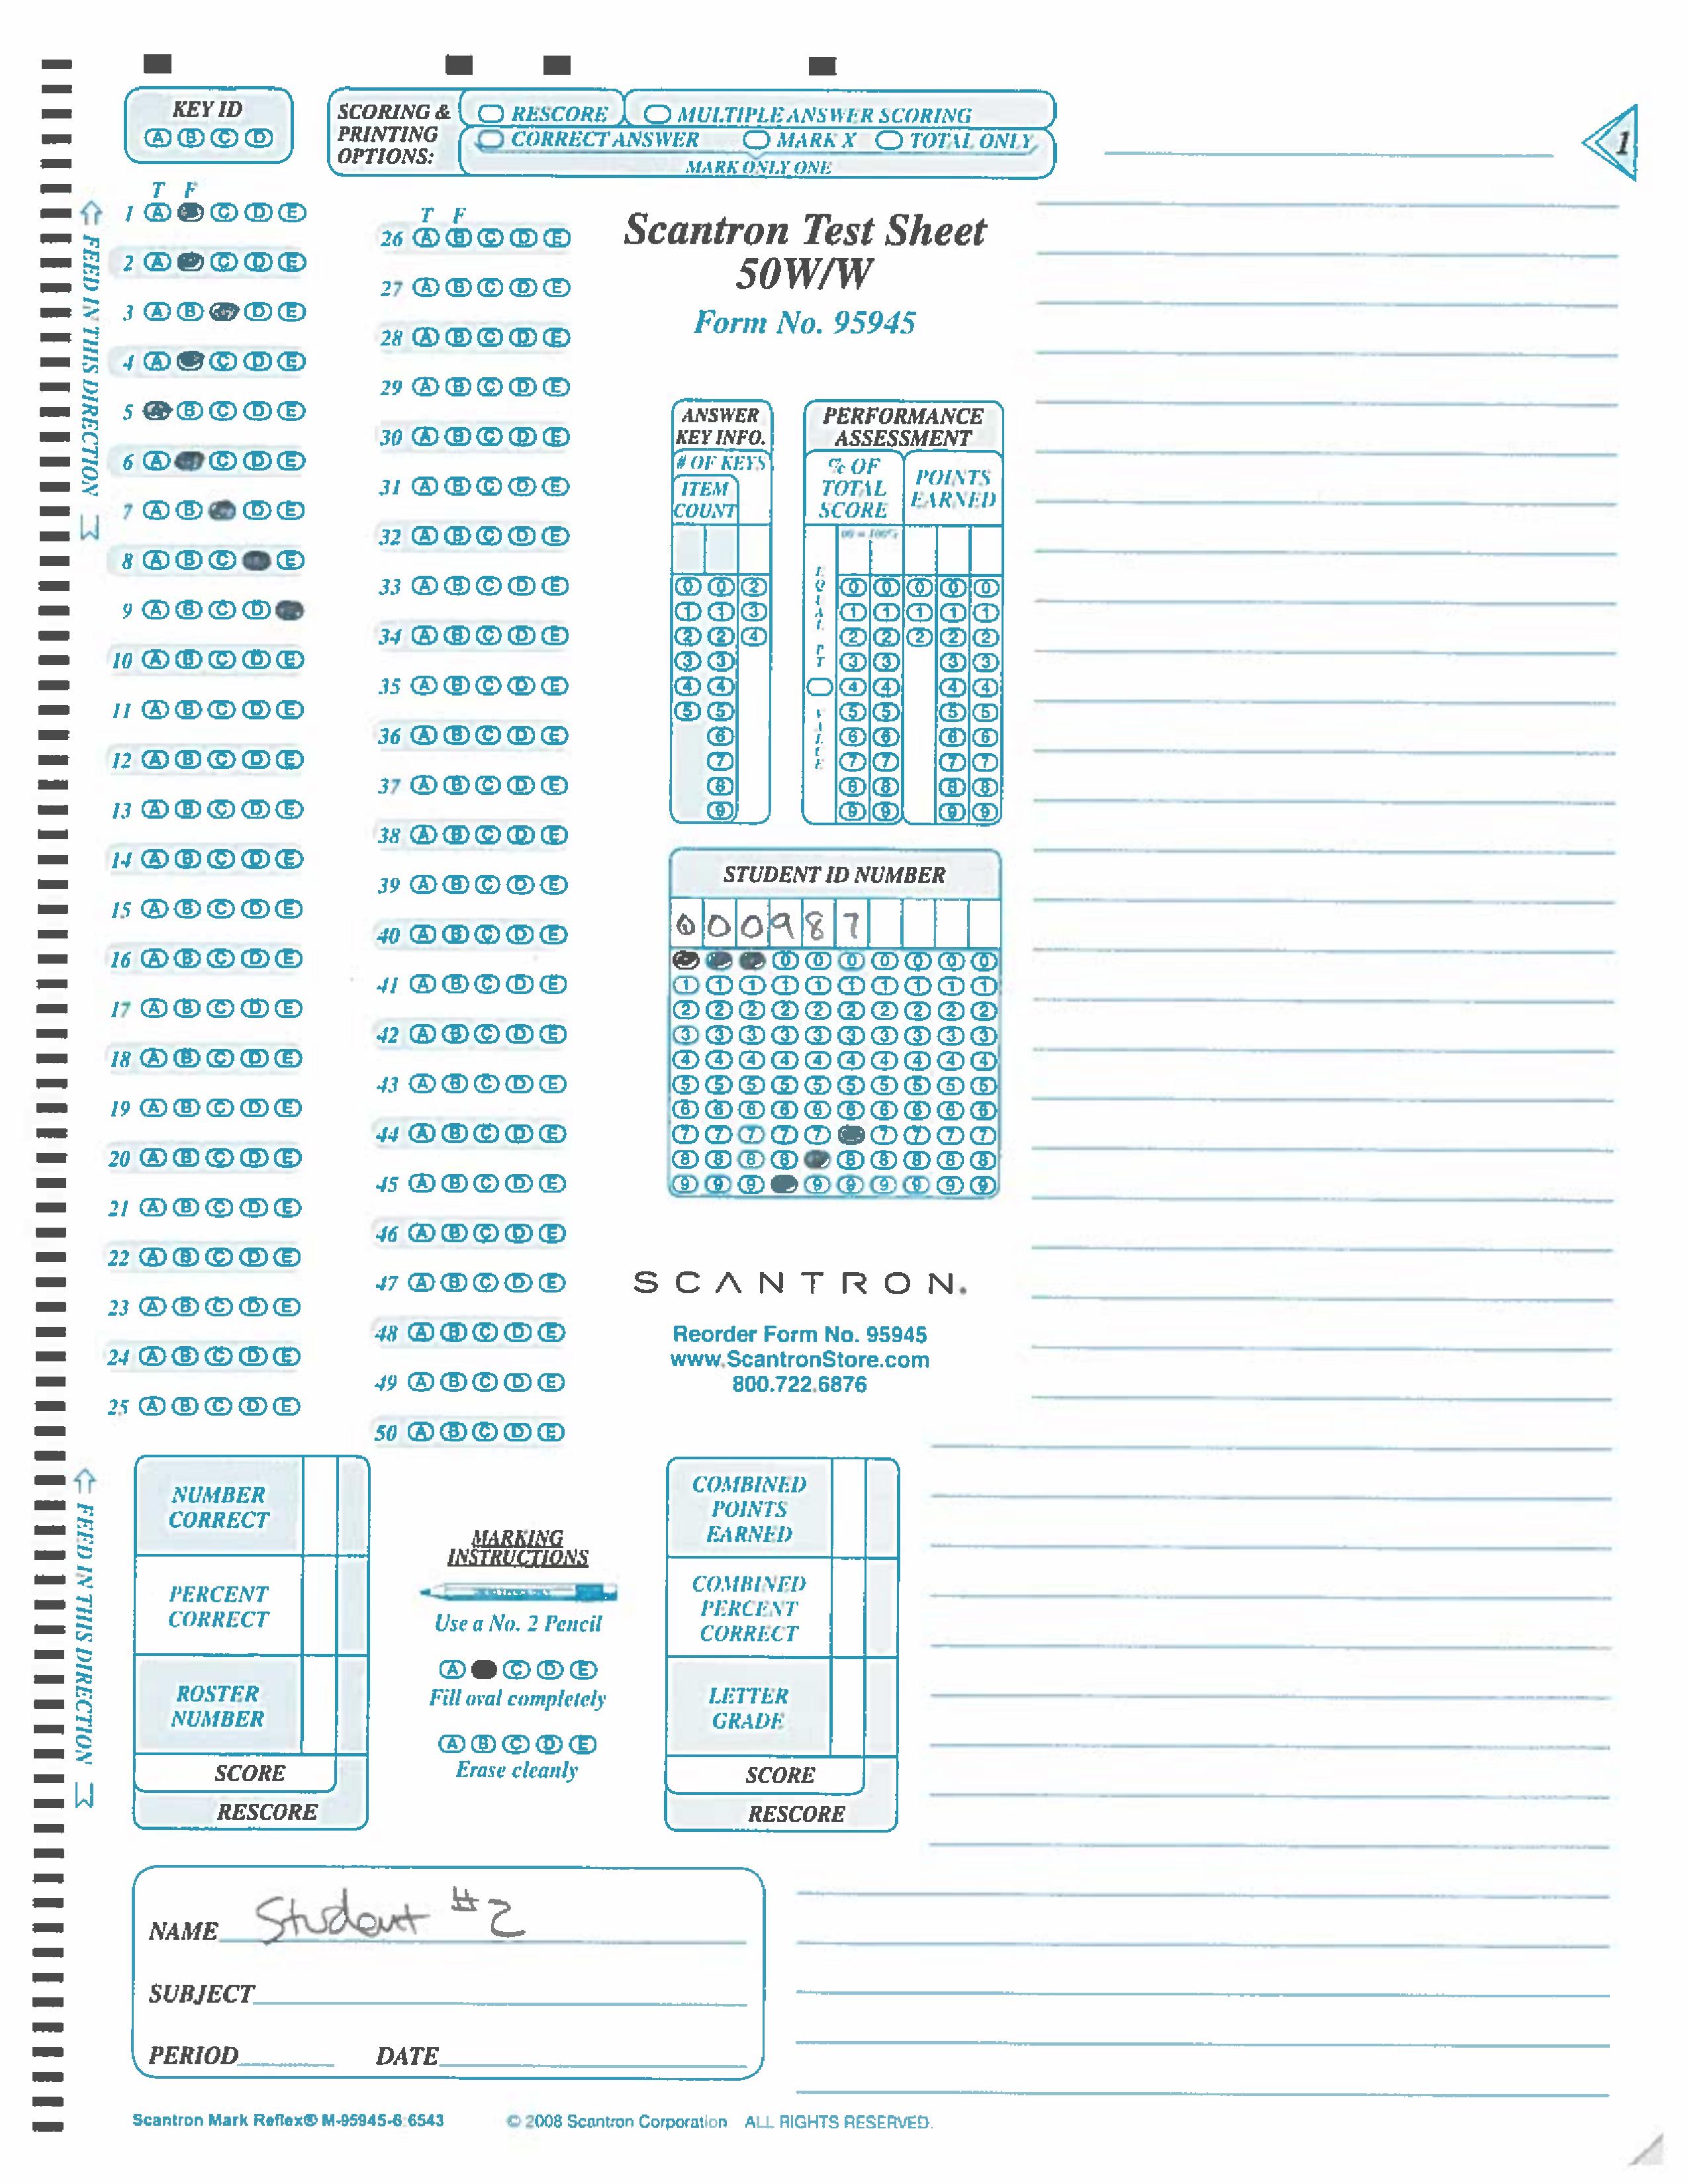 KEY ID
A B C D
SCORING &
PRINTING
OPTIONS:
RESCORE
MULTIPLE ANSWER SCORING
CORRECT ANSWER
MARK X
TOTAL ONLY
MARK ONLY ONE
1
FEED IN THIS DIRECTION
T F
1 A C D E
2 A C D E
3 A B D E
4 A C D E
5 A B C D E
6 A C D E
7 A B D E
8 A B C E
9 A B C D
10 A B C D E
11 A B C D E
12 A B C D E
13 A B C D E
14 A B C D E
15 A B C D E
16 A B C D E
17 A B C D E
18 A B C D E
19 A B C D E
20 A B C D E
21 A B C D E
22 A B C D E
23 A B C D E
24 A B C D E
25 A B C D E
T F
26 A B C D E
27 A B C D E
28 A B C D E
29 A B C D E
30 A B C D E
31 A B C D E
32 A B C D E
33 A B C D E
34 A B C D E
35 A B C D E
36 A B C D E
37 A B C D E
38 A B C D E
39 A B C D E
40 A B C D E
41 A B C D E
42 A B C D E
43 A B C D E
44 A B C D E
45 A B C D E
46 A B C D E
47 A B C D E
48 A B C D E
49 A B C D E
50 A B C D E
Scantron Test Sheet
50W/W
Form No. 95945
ANSWER
KEY INFO.
# OF KEYS
ITEM
COUNT
0 0 2
1 1 3
2 2 4
3 3
4 4
5 5
6
7
8
9
PERFORMANCE
ASSESSMENT
% OF
TOTAL
SCORE
POINTS
EARNED
00 = 100%
EQUAL PT VALUE
0 0 0 0 0
1 1 1 1 1
2 2 2 2 2
3 3 3 3
4 4 4 4
5 5 5 5
6 6 6 6
7 7 7 7
8 8 8 8
9 9 9 9
STUDENT ID NUMBER
0 0 0 9 8 7
0 0 0 0 0 0 0
1 1 1 1 1 1 1 1 1 1
2 2 2 2 2 2 2 2 2 2
3 3 3 3 3 3 3 3 3 3
4 4 4 4 4 4 4 4 4 4
5 5 5 5 5 5 5 5 5 5
6 6 6 6 6 6 6 6 6 6
7 7 7 7 7 7 7 7 7
8 8 8 8 8 8 8 8 8
9 9 9 9 9 9 9 9 9
SCANTRON.
Reorder Form No. 95945
www.ScantronStore.com
800.722.6876
FEED IN THIS DIRECTION
NUMBER
CORRECT
PERCENT
CORRECT
ROSTER
NUMBER
SCORE
RESCORE
MARKING
INSTRUCTIONS
Use a No. 2 Pencil
A C D E
Fill oval completely
A B C D E
Erase cleanly
COMBINED
POINTS
EARNED
COMBINED
PERCENT
CORRECT
LETTER
GRADE
SCORE
RESCORE
NAME Student #2
SUBJECT
PERIOD DATE
Scantron Mark Reflex® M-95945-6:6543 © 2008 Scantron Corporation ALL RIGHTS RESERVED.